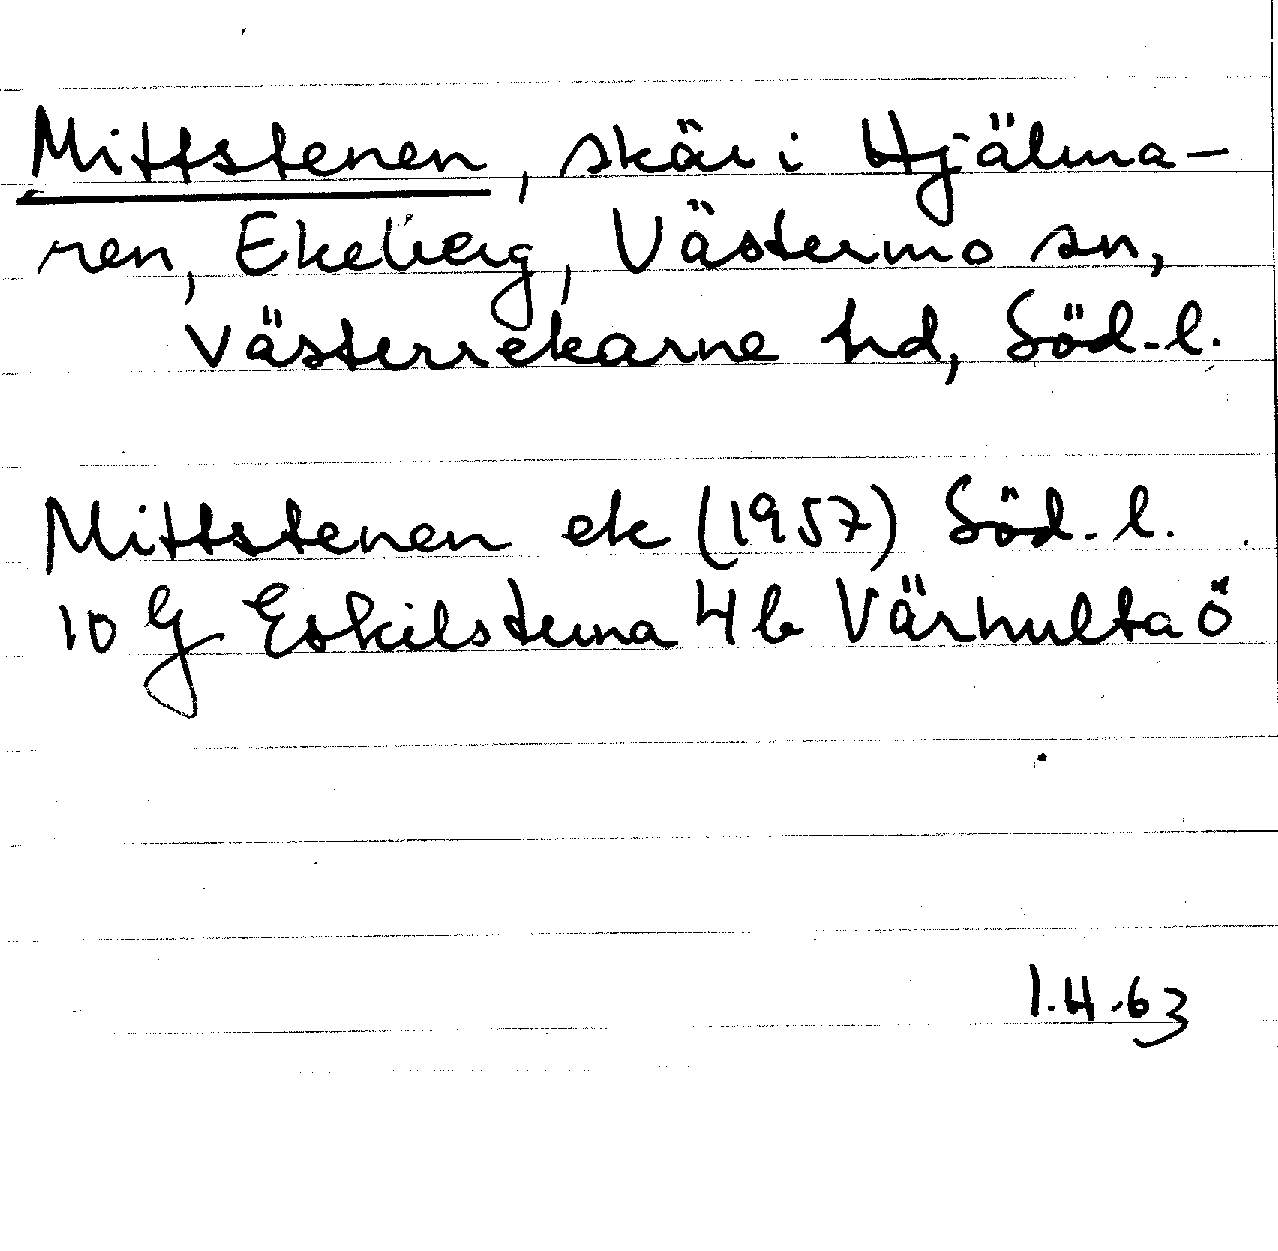 Mittstenen, skär i Hjälma-
ren, Ekeberg, Västermo sn,
Västerrekarne hd, Söd.l.
Mittstenen ek (1957) Söd.l.
10 G Eskilstuna 4 b Värhulta ö
1.4.63